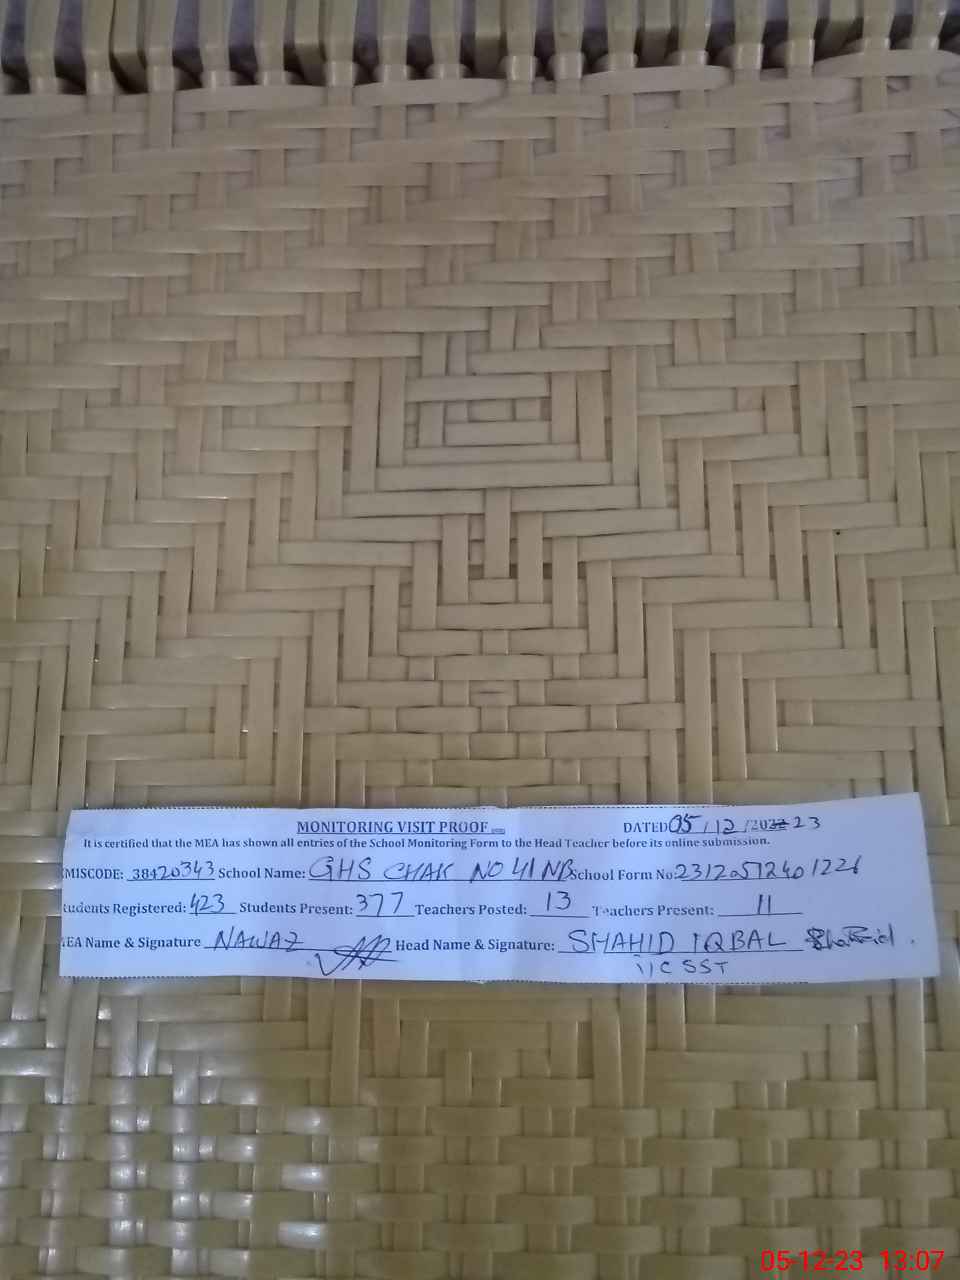 MONITORING VISIT PROOF DATED 05/12/202223
It is certified that the MEA has shown all entries of the School Monitoring Form to the Head Teacher before its online submission.
MISCODE: 38420343 School Name: GHS CHAK NO 41 NB School Form No: 23120512401226
tudents Registered: 423 Students Present: 377 Teachers Posted: 13 Teachers Present: 11
EA Name & Signature NAWAZ Head Name & Signature: SHAHID IQBAL Shahid
I/C SST
05-12-23 13:07